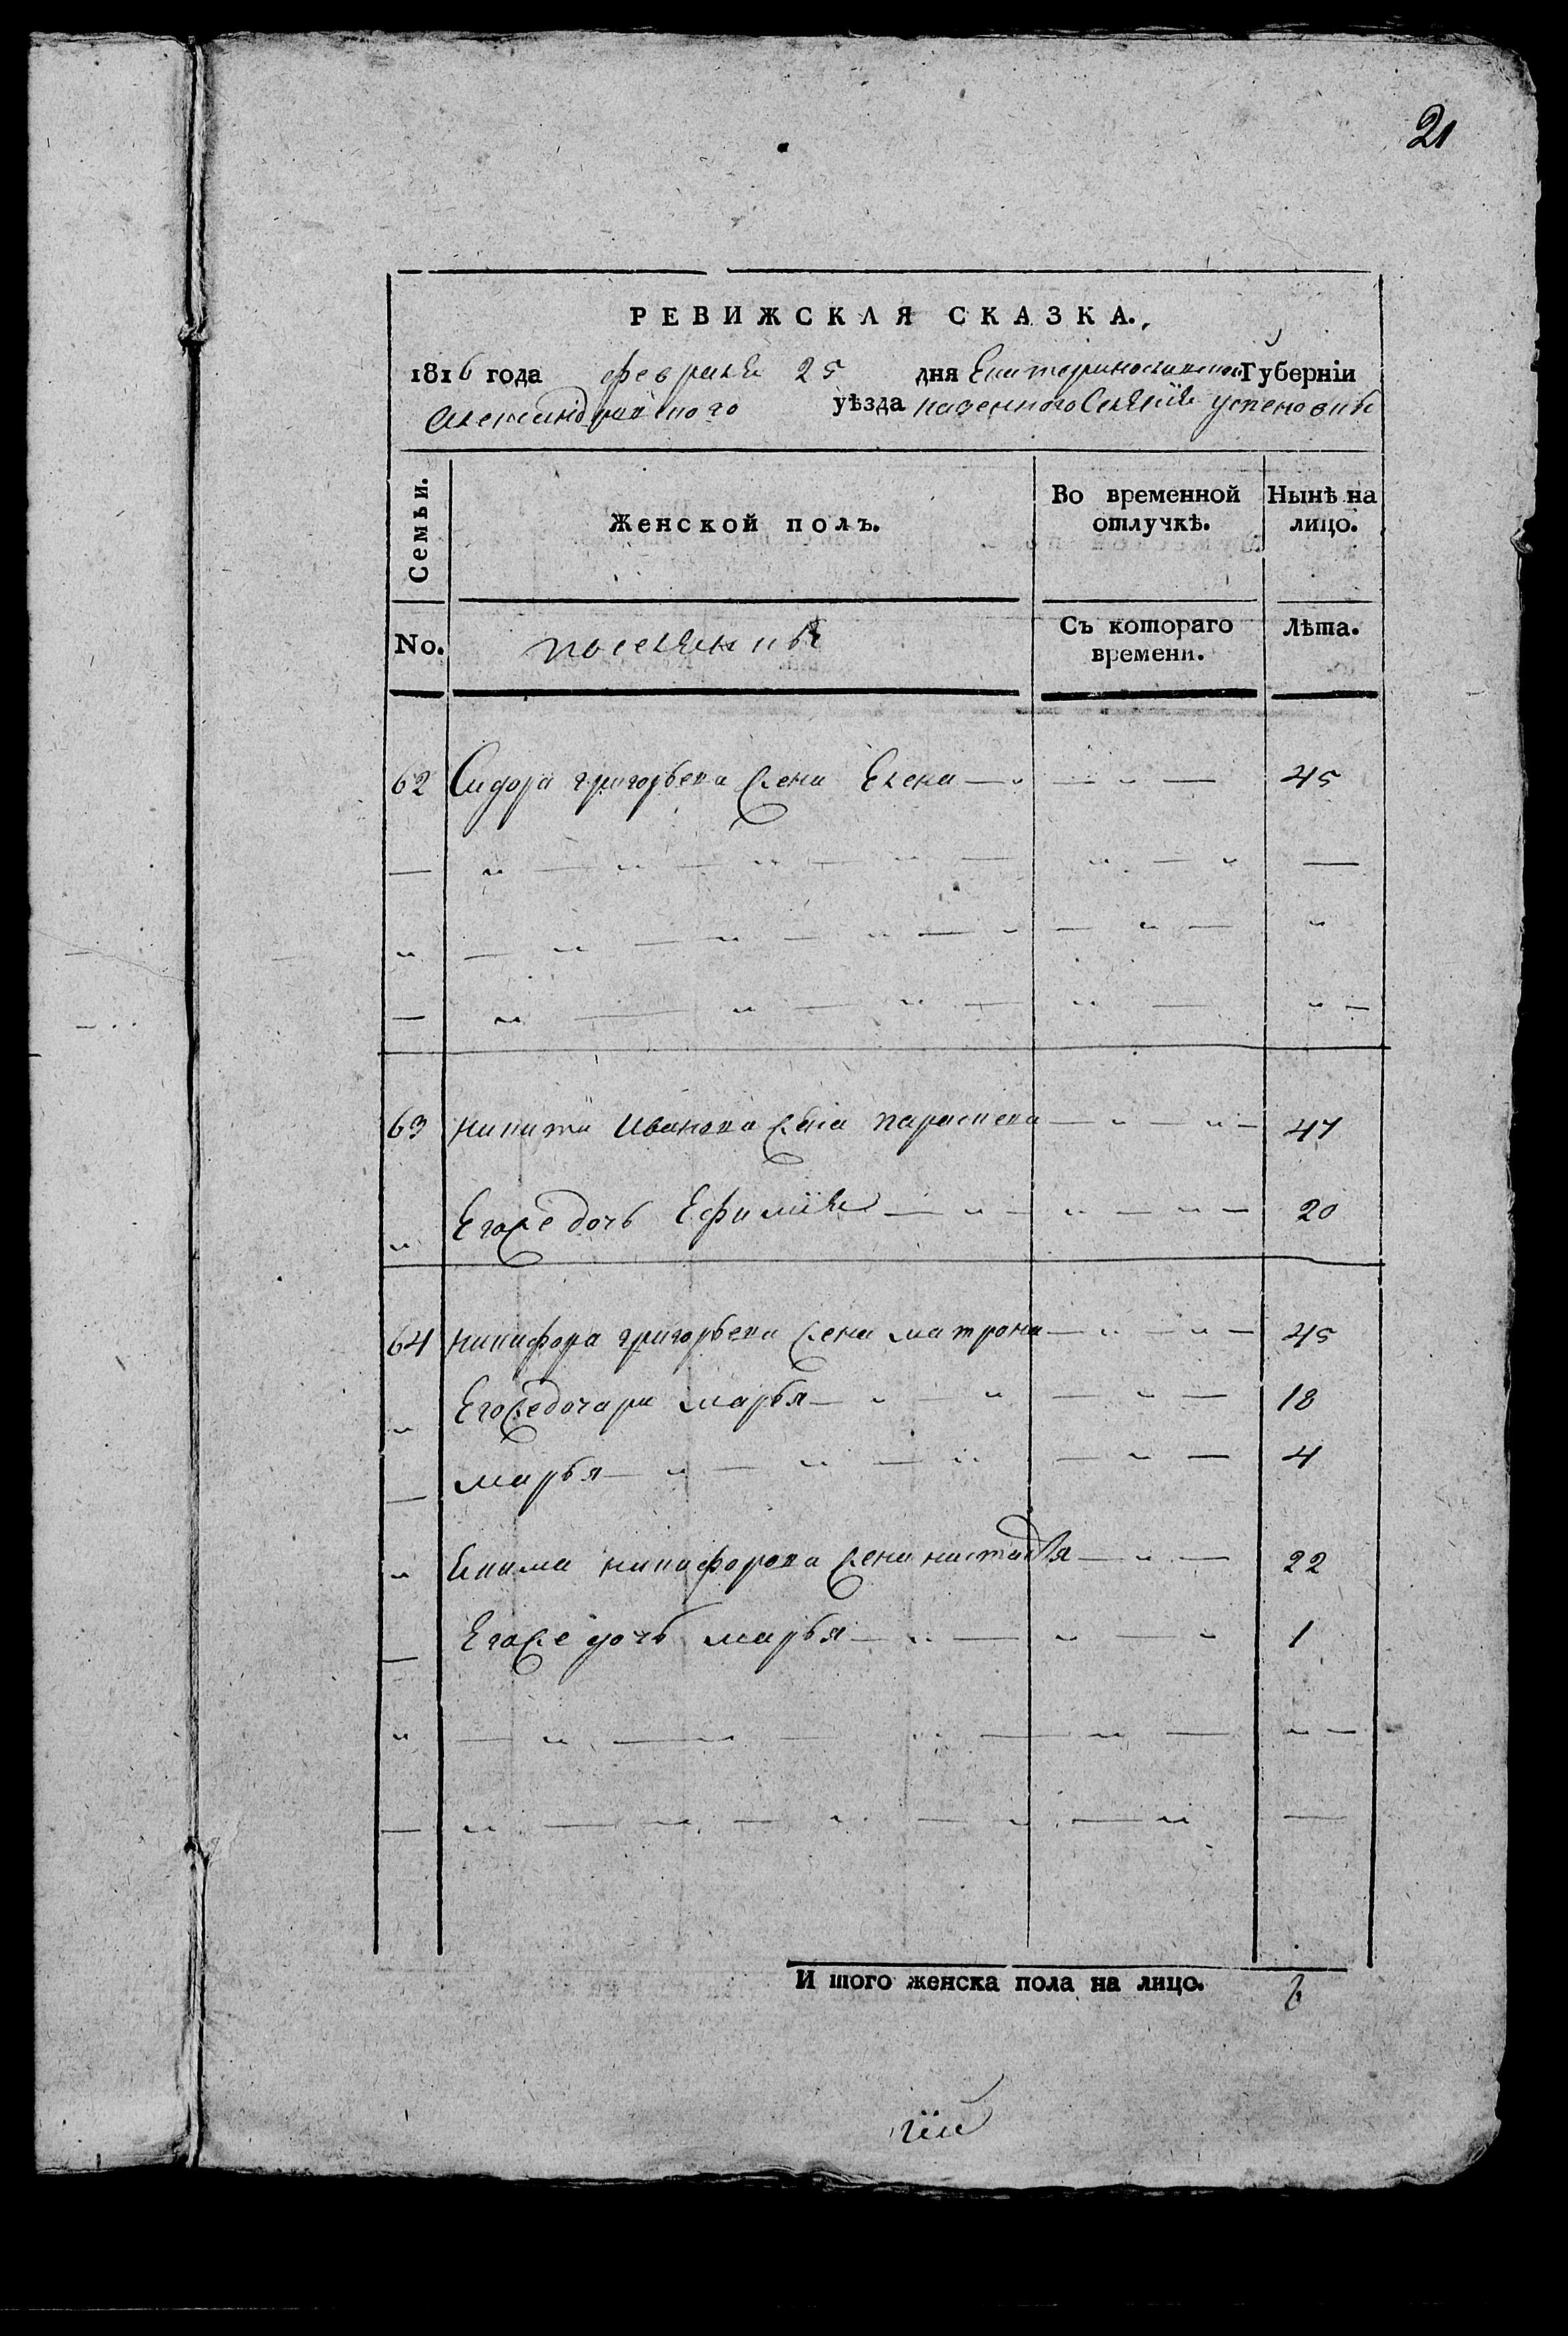 21
РЕВИЖСКАЯ СКАЗКА.
1816 года февраля 25 дня Екатеринославской Губерніи
Александровского уѣзда казенного Селенія успеновки
Семьи.
Женской полъ.
Во временной отлучкѣ.
Нынѣ на лицо.
No.
поселяник
Съ котораго времени.
Лѣта.
62 Сидора григорьева жена Елена 45
63 никиты Иванова жена параскева 47
Его же дочь Ефимія 20
64 никифора григорьева жена матрона 45
Его же дочери марья 18
марья 4
Екима никифорова жена настасья 22
Его же дочь марья 1
И того женска пола на лицо.